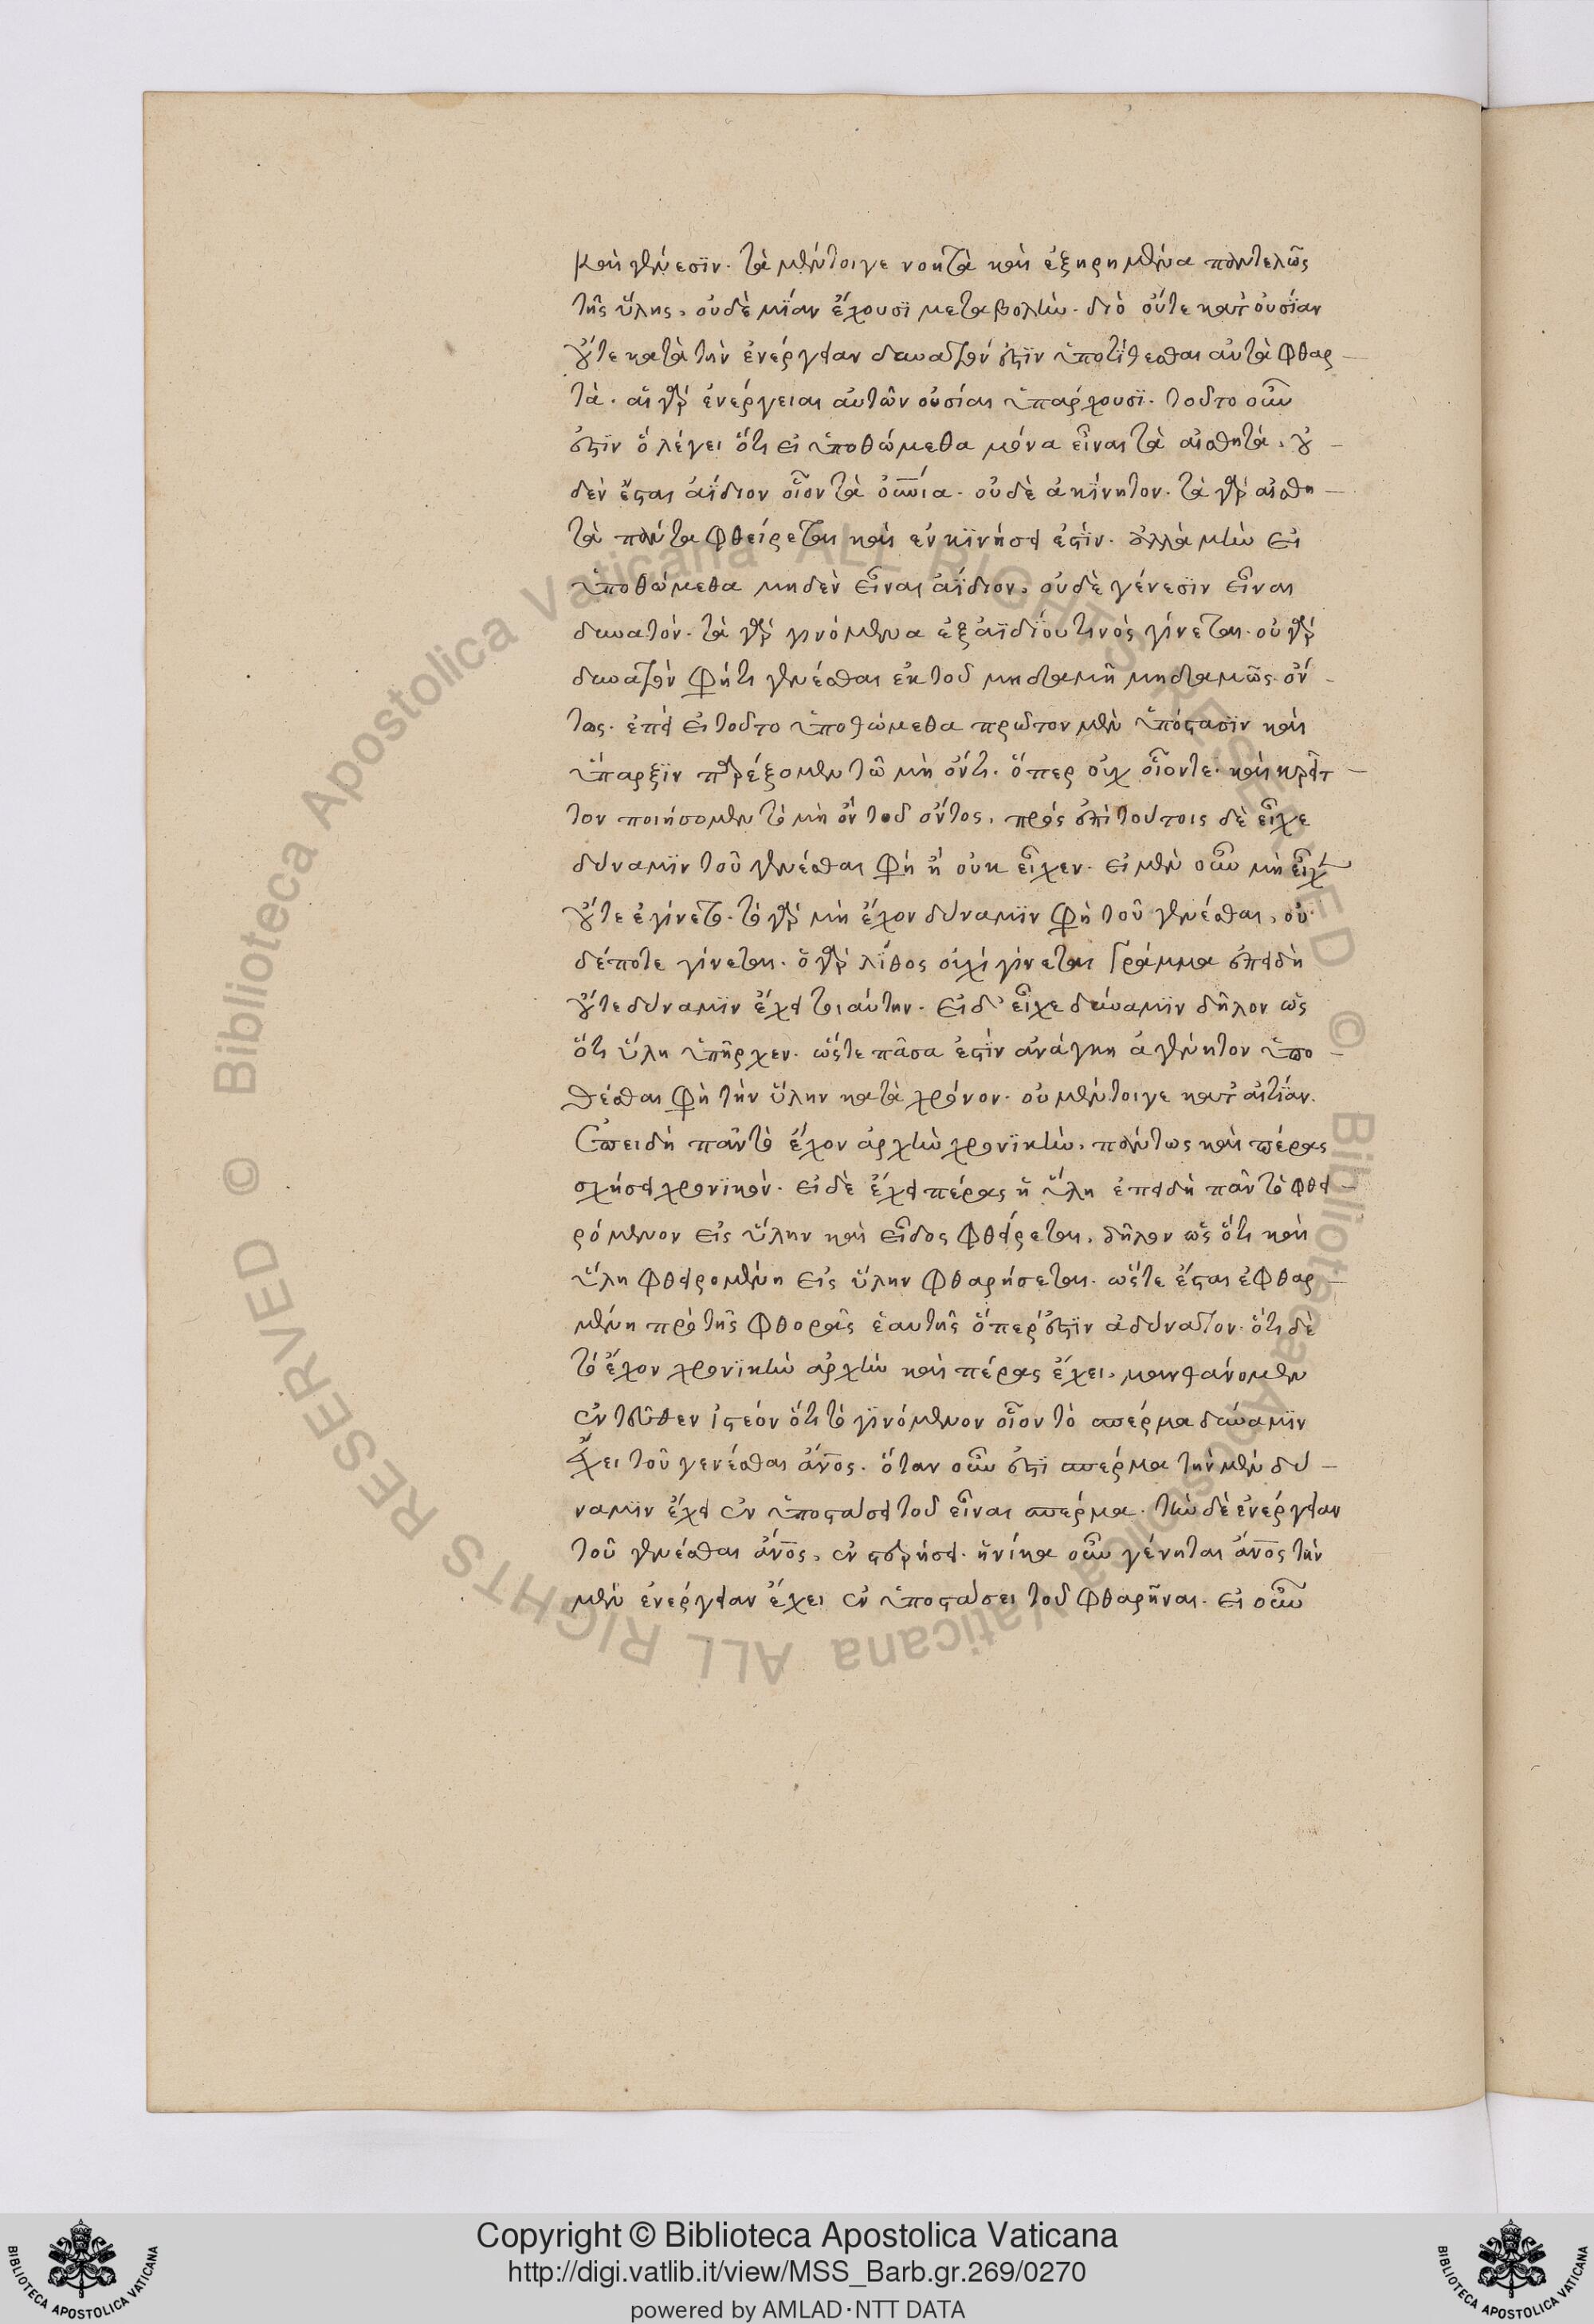 καὶ γένεσϊν. τὰ μέντοιγε νοητὰ καὶ ἐξῃρημένα παντελῶς
τῆς ὕλης, οὐδὲ μΐαν ἔχουσϊ μεταβολὴν. διὸ οὔτε κατ' οὐσΐαν
οὔτε κατὰ τὴν ἐνέργειαν δυνατόν ἐστϊν ὑποτΐθεσθαι αὐτὰ φθαρ-
τὰ. αἱ γὰρ ἐνέργειαι αὐτῶν οὐσίαι ὑπάρχουσϊ. τοῦτο οὖν
ἐστϊν ὃ λέγει ὅτι εἰ ὑποθώμεθα μόνα εἶναι τὰ αἰσθητὰ, οὐ-
δὲν ἔσται ἀΐδιον οἷον τὰ οὐνια. οὐδὲ ἀκΐνητον. τὰ γὰρ αἰσθη-
τὰ πάντα φθείρεται καὶ ἐν κϊνήσει ἐστΐν. ἀλλὰ μὴν εἰ
ὑποθώμεθα μηδὲν εἶναι ἀΐδιον, οὐδὲ γένεσϊν εἶναι
δυνατόν. τὰ γὰρ γινόμενα ἐξ ἀϊδΐου τινὸς γίνεται. οὐ γὰρ
δυνατὸν φησὶ γενέσθαι ἐκ τοῦ μηδαμῆ μηδαμῶς ὄν-
τος. ἐπεὶ εἰ τοῦτο ὑποθώμεθα πρῶτον μὲν ὑπόστασϊν καὶ
ὕπαρξϊν παρέξομεν τῶ μὴ ὄντι. ὅπερ οὐχ οἷόντε. καὶ κρεῖτ-
τον ποιήσομεν τὸ μὴ ὂν τοῦ ὄντος, πρὸς ἐπὶ τούτοις δὲ εἶχε
δύναμϊν τοῦ γενέσθαι φησὶ ἢ οὐκ εἶχεν. εἰ μὲν οὖν μὴ εἶχε
οὔτε ἐγίνετο. τὸ γὰρ μὴ ἔχον δύναμϊν φησὶ τοῦ γενέσθαι, οὐ
δέποτε γίνεται. ὁ γὰρ λΐθος οὐχὶ γίνεται γράμμα ἐπειδὴ
οὔτε δύναμϊν ἔχει τοιαύτην. εἰ δ' εἶχε δύναμϊν δῆλον ὡς
ὅτι ὕλη ὑπῆρχεν. ὥστε πᾶσα ἐστΐν ἀνάγκη ἀγένητον ὑπο-
θέσθαι φησὶ τὴν ὕλην κατὰ χρόνον. οὐ μέντοιγε κατ' αἰτΐαν.
Ἐπειδὴ πᾶν τὸ ἔχον ἀρχὴν χρονϊκὴν, πάντως καὶ πέρας
σχήσει χρονϊκόν. εἰ δὲ ἔχει πέρας ἡ ὕλη ἐπειδὴ πᾶν τὸ φθει-
ρόμενον εἰς ὕλην καὶ εἶδος φθείρεται, δῆλον ὡς ὅτι καὶ
ὕλη φθειρομένη εἰς ὕλην φθαρήσεται. ὥστε ἔσται ἐφθαρ-
μένη πρὸ τῆς φθορᾶς ἑαυτῆς ὅπερ ἐστϊν ἀδύνατον. ὅτι δὲ
τὸ ἔχον χρονϊκὴν ἀρχὴν καὶ πέρας ἔχει, μανθάνομεν
ἐντεῦθεν ἰστέον ὅτι τὸ γϊνόμενον οἷον τὸ σπέρμα δύναμϊν
ἔχει τοῦ γενέσθαι ἄνος. ὅταν οὖν ἐστϊ σπέρμα τὴν μὲν δύ-
ναμϊν ἔχει ἐν ὑποστάσει τοῦ εἶναι σπέρμα. τὴν δὲ ἐνέργειαν
τοῦ γενέσθαι ἄνος, ἐν στερήσει. ἡνίκα οὖν γένηται ἄνος τὴν
μὲν ἐνέργειαν ἔχει ἐν ὑποστάσει τοῦ φθαρῆναι. εἰ οὖν
Copyright © Biblioteca Apostolica Vaticana
http://digi.vatlib.it/view/MSS_Barb.gr.269/0270
powered by AMLAD·NTT DATA
BIBLIOTECA APOSTOLICA VATICANA
BIBLIOTECA APOSTOLICA VATICANA
© Biblioteca Apostolica Vaticana ALL RIGHTS RESERVED
© Biblioteca Apostolica Vaticana ALL RIGHTS RESERVED